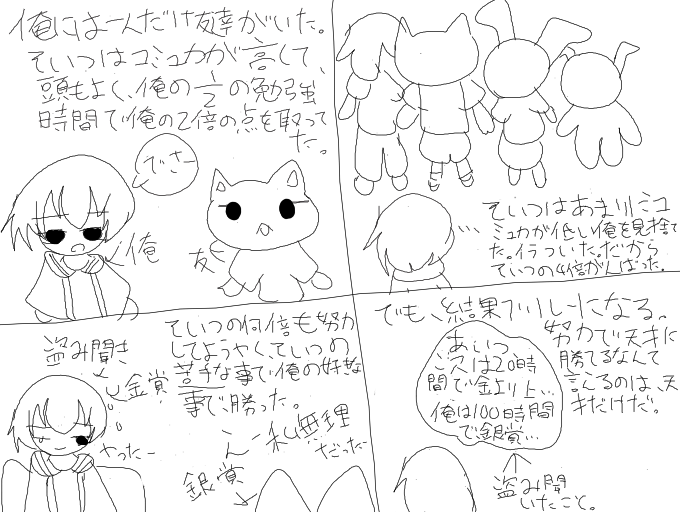 俺には一人だけ友達がいた。
そいつはコミュカが高くて、
頭もよく、俺の1/2の勉強
時間で俺の2倍の点を取って
た。
でさー
俺
友
そいつはあまりコ
ミュカが低い俺を見捨て
た。イラついた。だから
そいつの4倍がんばった。
そいつの何倍も努力
してようやく、そいつの
苦手な事で、俺の好きな
事で勝った。
盗み聞き
金賞
やったー
ん〜私無理
だったー
銀賞
でも、結果フリレーになる。
努力で天才に
勝てるなんて
言えるのは、天
才だけだ。
あいつ
次は20時
間で金より上…
俺は100時間
で銀賞…
盗み聞
いたこと。